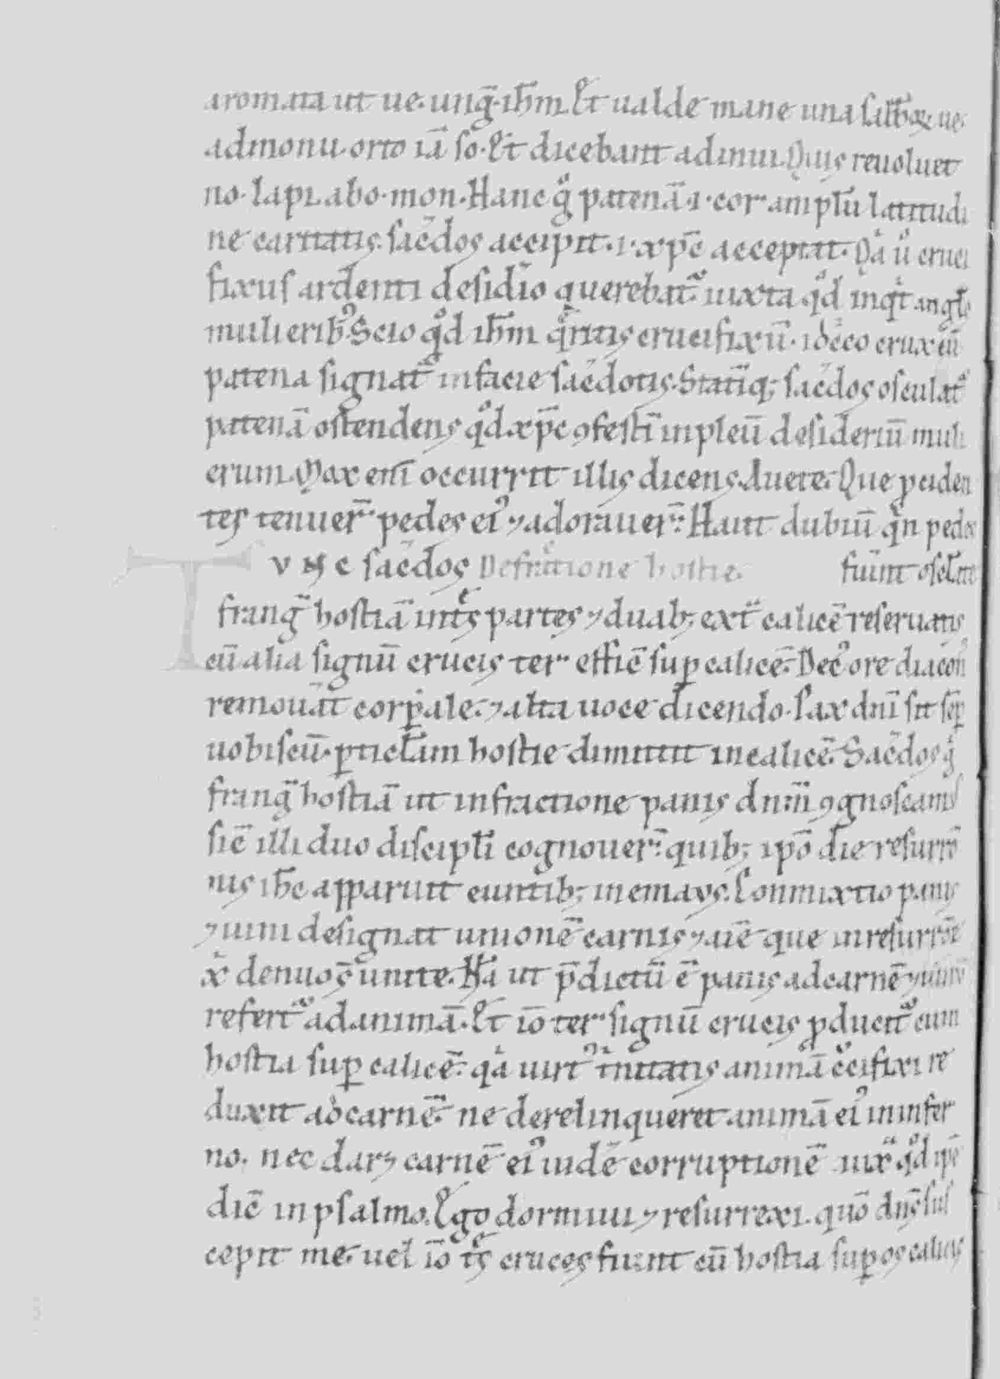 aromata ut ue. ungͣ. ihm. Et ualde mane una sabboꝝ ue.
admonu. orto iā so. Et dicebant adinui. Quis reuoluet
no. lapi. abo. mon. Hanc gͦ patenā .i. cor amplū latitudi
ne caritatis. sac̄dos accipit .i. xp̄c acceptat. Qͣa ū cruci
fixus ardenti desid̄io querebatᷣ iuxta qͦd inqͥt angl̄s
mulierib; Scio qͦd ihm qͣritis crucifixū. idcͦco crux cū
patena signatᷣ infacie sac̄dotis. Statīq; sac̄dos osculatᷣ
patenā ostendens qͦd xp̄c ꝯfestī inpleū desideriū muli
erum. Mox enī occurrit illis dicens. Auete. Que ꝓciden
tes tenuer̄ pedes ei⁹ ⁊ adorauer̄. Haut dubiū qͥn pedes
fuīnt oscl̄ate
TVNC sac̄dos De fractione hostie.
frangͣ hostiā in tͤs partes ⁊ duab; extᷓ calicē reseruatis
cū alia signū crucis ter effic̄ suꝑ calicē. Dec̄ ore diacon̄
remouāt corꝑale. ⁊ alta uoce dicendo. Pax dnī sit sēꝑ
uobiscū. ꝑticlam hostie dimittit incalicē. Sac̄dos gͦ
frangͥ hostiā ut infractione panis dnm̄ ꝯgnoscam⁹
sic̄ illi duo discipl̄i cognouer̄. quib; ipō die resurrō
nis ihc̄ apparuit euntib; inemaus. Conmixtio panis
⁊ uini designat unionē carnis ⁊ aīe que inresurrōe
xͥ denuo sͭ unite. Nā ut p̄dictū ē panis adcarnē ⁊ uinū
refertᷣ adanimā. Et iō ter signū crucis ꝓducitᷣ cum
hostia suꝑ calicē. qͣa uirt⁹ tͥnitatis animā cͮcifixi re
duxit adcarnē. ne derelinqueret animā ei⁹ ininfer
no. nec dar& carnē ei⁹ uidē corruptionē iuxͭ qͦd ipē
dic̄ inpsalmo. Ego dormiui ⁊ resurrexi. quō dn̄s sus
cepit me. uel iō tͤs cruces fiunt cū hostia suꝑ os calicis